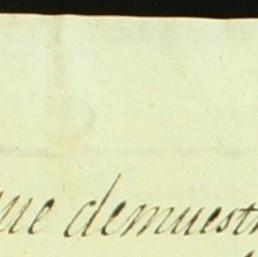 que demuestr